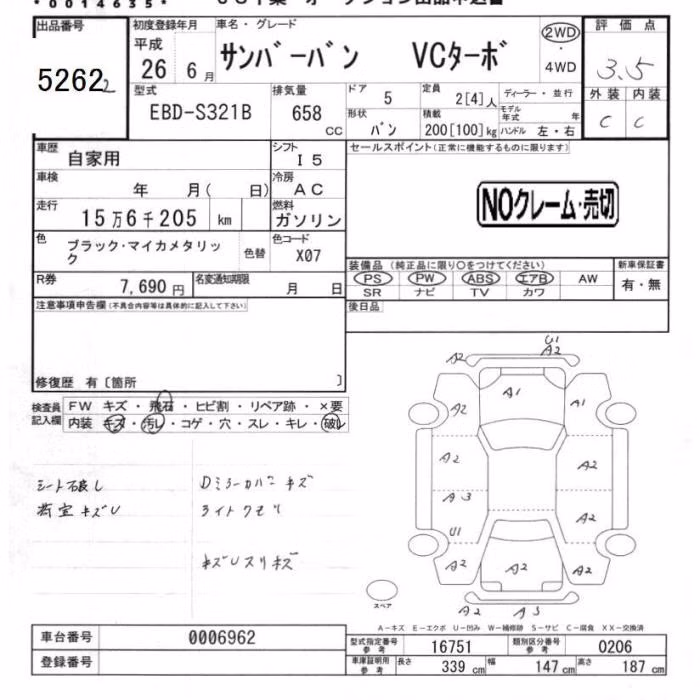 *0014635*
出品番号 初度登録年月 車名・グレード 評価点
平成 サンバーバン VCターボ 2WD 4WD 3.5
52622 26年 6月
型式 排気量 ドア 定員 ディーラー・並行 外装 内装
EBD-S321B 658 CC 5 2[4]人 モデル年式 年 C C
形状 バン 積載 200[100]kg ハンドル 左・右
車歴 自家用 シフト I5 セールスポイント(正常に機能するものに限ります)
車検 年 月( 日) 冷房 AC
NOクレーム・売切
走行 15万6千205 km 燃料 ガソリン
色 ブラック・マイカメタリック 色替 色コード X07
装備品 (純正品に限り○をつけてください) 新車保証書
PS PW ABS エアB AW 有・無
SR ナビ TV カワ
R券 7,690円 名変通知期限 月 日
注意事項申告欄(不具合内容等は具体的に記入して下さい) 後日品
修復歴 有〔箇所 〕
検査員記入欄 FW キズ・飛石・ヒビ割・リペア跡・×要
内装 キズ・汚レ・コゲ・穴・スレ・キレ・破レ
シート破レ Dミラーカバーキズ
荷室キズU ライトクモリ
キズUスリキズ
U1
A2 A2
A2 A1 A1
A2 A2
A3 A2
U1
A2 A2 A2
A2 A3
スペア
A-キズ E-エクボ U-凹み W-補修跡 S-サビ C-腐食 XX-交換済
車台番号 0006962 型式指定番号 参考 16751 類別区分番号 参考 0206
登録番号 車庫証明用 参考 長さ 339cm 幅 147cm 高さ 187cm